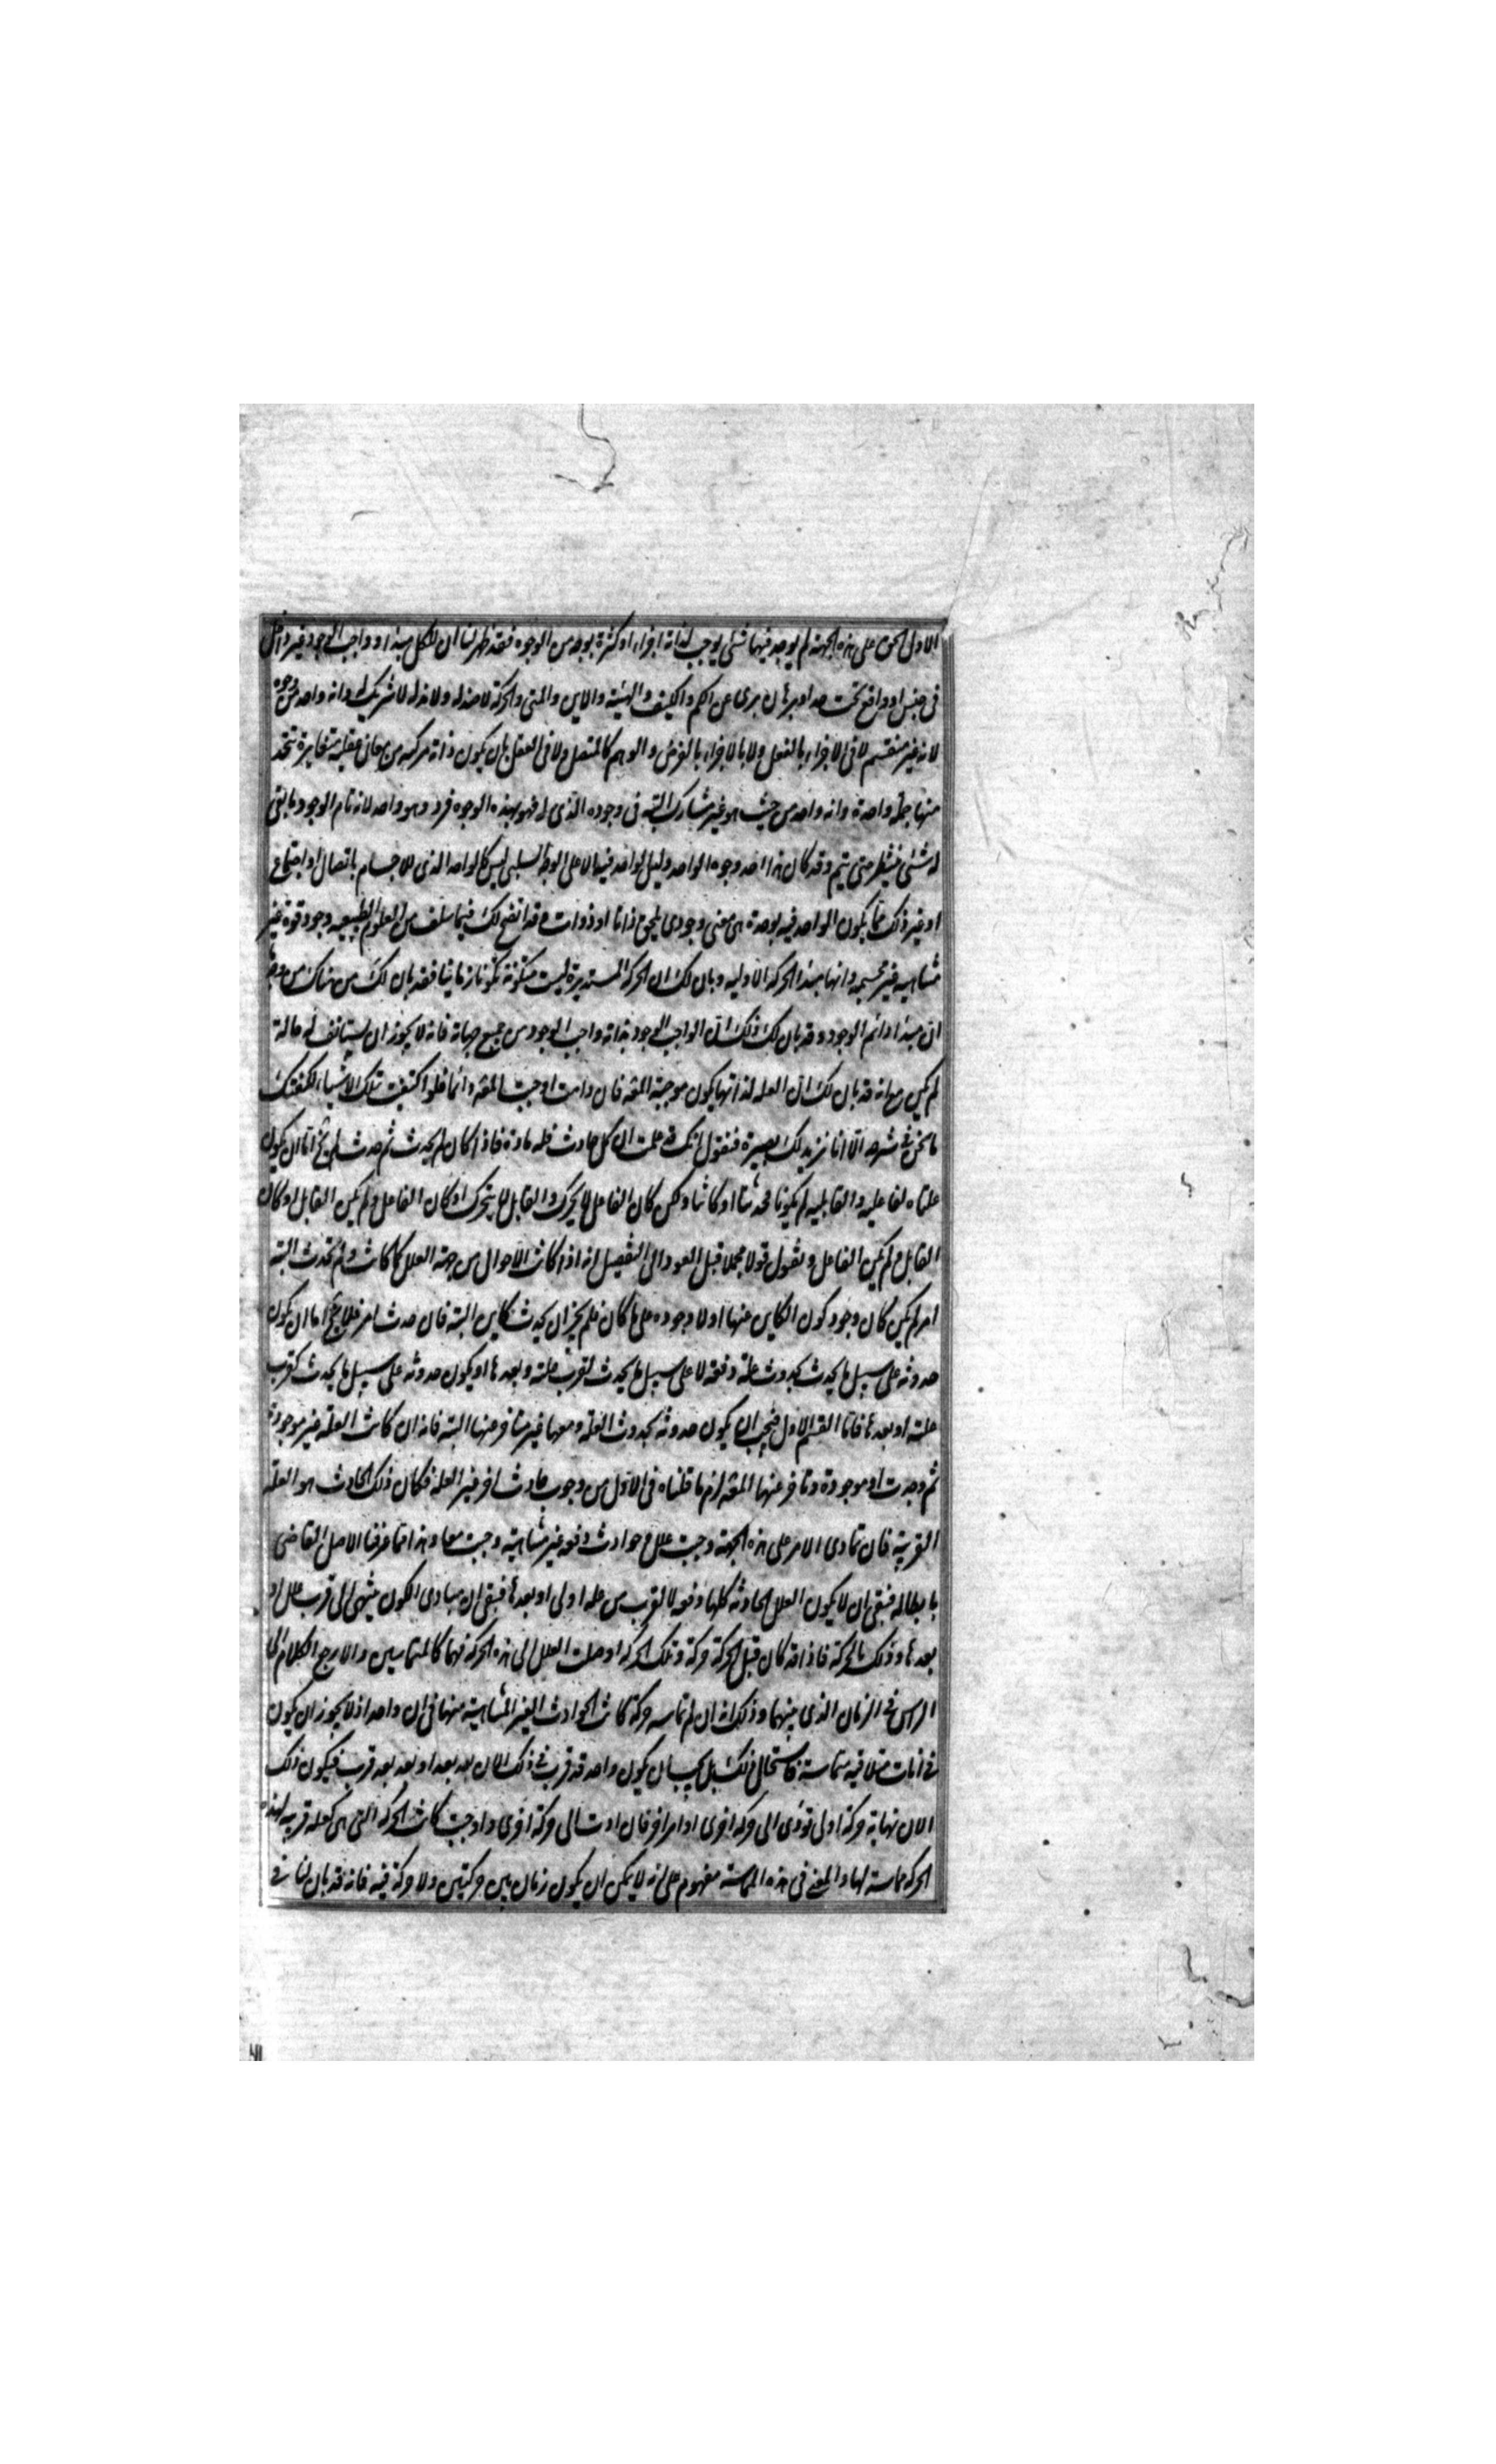 الاول الحق على هذه الجهة لم يوجد فيها شئ يوجب لذاته اجزاء او كثرة بوجه من الوجوه فقد ظهر لنا ان للكل مبدأ واجب الوجود غير داخل
فى جنس او واقع تحت حد او برهان برى عن الكم والكيف والهيئة والاين والمتى والحركة لا ضد له ولا ند له لا شريك له وانه واحد من وجوه
لانه غير منقسم لا فى الاجزاء بالفعل ولا بالاجزاء بالفرض والوهم كالمتصل ولا فى العقل بان يكون ذاته مركبه من معانى عقليه متغايرة تتحد
منها جملة واحدة وانه واحد من حيث هو غير مشارك البتة فى وجوده الذى له فهو بهذه الوجوه فرد وهو واحد لانه تام الوجود ما بقى
له شئ ينتظر حتى يتم وقد كان هذا احد وجوه الواحد وليس الواحد فيه الا على الوجه السلبى ليس كالواحد الذى للاجسام باتصال او اجتماع
او غير ذلك مما يكون الواحد فيه بوحدة هى معنى وجودى يلحق ذاتا او ذوات وقد اتضح لك فيما سلف من العلوم الطبيعيه وجود قوة غير
متناهيه غير مجسمه وانها مبدأ الحركة الاوليه وبان لك ان الحركة المستديرة ليست متكونة تكونا زمانيا فقد بان لك من هناك من وجه ما
ان مبدأ دائم الوجود وقد بان لك بعد ذلك ان الواجب الوجود بذاته واجب الوجود من جميع جهاته فانه لا يجوز ان يستأنف له حالة
لم يكن مع انه قد بان لك ان العله لذاتها يكون موجبة المعلول فان دامت اوجبت المعلول دائما فلو اكتفيت بتلك الاشياء لكفتك
ما نحن فى شرحه الا انا نزيدك بصيرة فنقول انك قد علمت ان كل حادث فله مادة فاذا كان لم يحدث ثم حدث لم يخ اما ان يكون
علتاه الفاعليه والقابليه لم يكونا فحدثتا او كانتا ولكن كان الفاعل لا يحرك والقابل لا يتحرك او كان الفاعل ولم يكن القابل او كان
القابل ولم يكن الفاعل ونقول قولا مجملا قبل العود الى التفصيل انه اذا كانت الاحوال من جهة العلل كما كانت ولم تحدث البتة
امر لم يكن كان وجود كون الكاين عنها او لا وجوده على ما كان فلم يجز ان يحدث كاين البتة فان حدث امر فلا يخ اما ان يكون
حدوثه على سبيل ما يحدث بحدوث علته دفعة لا على سبيل ما يحدث لقرب علته وبعدها او يكون حدوثه على سبيل ما يحدث لقرب
علته او بعدها فاما القسم الاول فيجب ان يكون حدوثه بحدوث العلة ومعها غير متاخر عنها البتة فانه ان كانت العلة غير موجودة
ثم وجدت او موجودة وتاخر عنها المعلول لزم ما قلناه فى الاول من وجوب حادث اخر غير العلة فكان ذلك الحادث هو العلة
القريبة فان تمادى الامر على هذه الجهة وجبت علل وحوادث دفعه غير متناهية وجبت معا وهذا مما عرفنا الاصل القاضى
بابطاله فبقى ان لا يكون العلل الحادثة كلها دفعه لا لقرب من علة اولى او بعدها فبقى ان مبادى الكون ينتهى الى قرب علل او
بعدها وذلك بالحركة فاذا قد كان قبل الحركة حركة وتلك الحركة اوصلت العلل الى هذه الحركة فهما كالمتماسين والا رجع الكلام الى
الراس فى الزمان الذى بينهما وذلك انه ان لم تماسه حركة كانت الحوادث الغير المتناهية منها فى ان واحد اذ لا يجوز ان يكون
فى انات متلاقيه متماسة فاستحال ذلك بل يجب ان يكون واحد قد قرب فى ذلك الان بعد بعد او بعد بعد قرب فيكون ذلك
الان نهاية حركة اولى تؤدى الى حركة اخرى او امر اخر فان ادت الى حركة اخرى واوجبت كانت الحركة التى هى كعلة قريبه لهذه
الحركة مماسة لها والمعنى فى هذه المماسة مفهوم على انه لا يمكن ان يكون زمان بين حركتين ولا حركة فيه فانه قد بان لنا فى